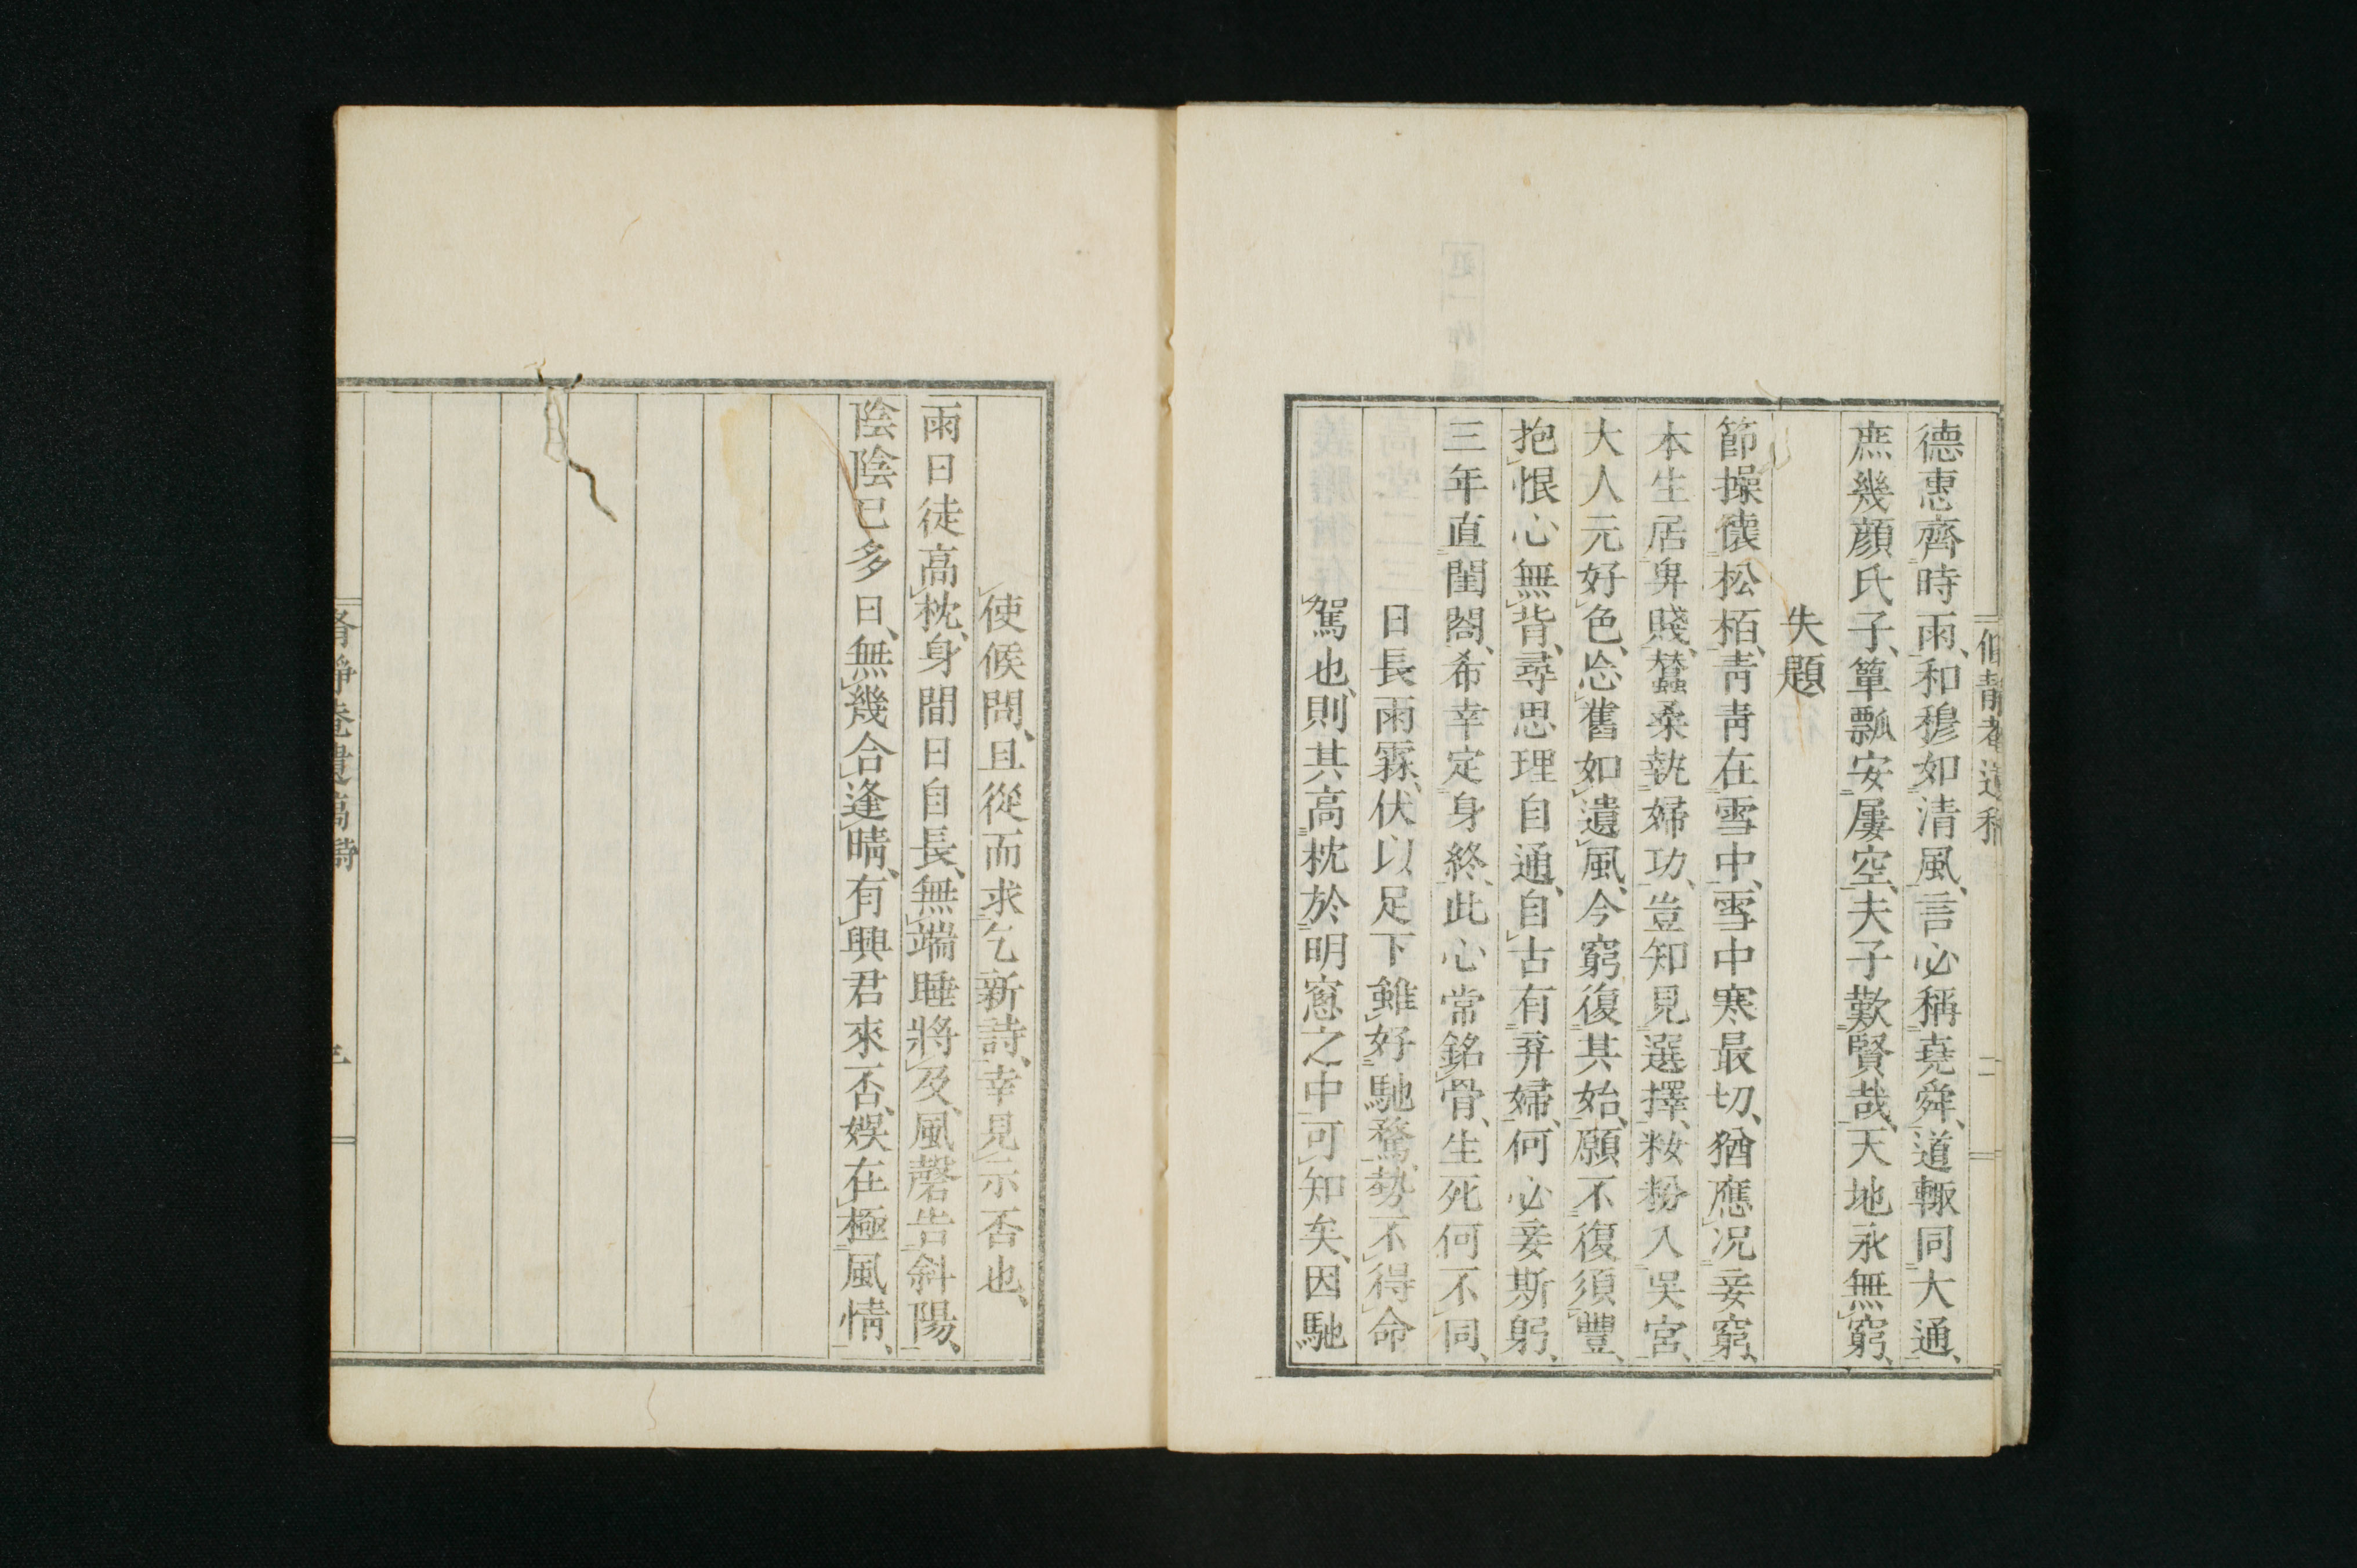 德惠齊時雨、和穆如清風、言必稱堯舜、道輙同大通、
庶幾顔氏子、簞瓢安屢空、夫子歎賢哉、天地永無窮、
失題
節操懐松栢、靑靑在雪中、雪中寒最切、猶應况妾窮、
本生居卑賤、蠶桑執婦功、豈知見選擇、粧粉入吳宮、
大人元好色、忩舊如遺風、今窮復其始、願不復須豐、
抱恨心無背、尋思理自通、自古有弃婦、何必妾斯躬、
三年直閨閤、希幸定身終、此心常銘骨、生死何不同、
日長雨霖、伏以足下雖好馳騖、勢不得命
駕也、則其高枕於明窓之中可知矣、因馳
使候問、且從而求乞新詩、幸見示否也、
雨日徒高枕、身間日自長、無端睡將及、風磬告斜陽、
陰陰已多日、無幾合逢晴、有興君來否、娯在極風情、